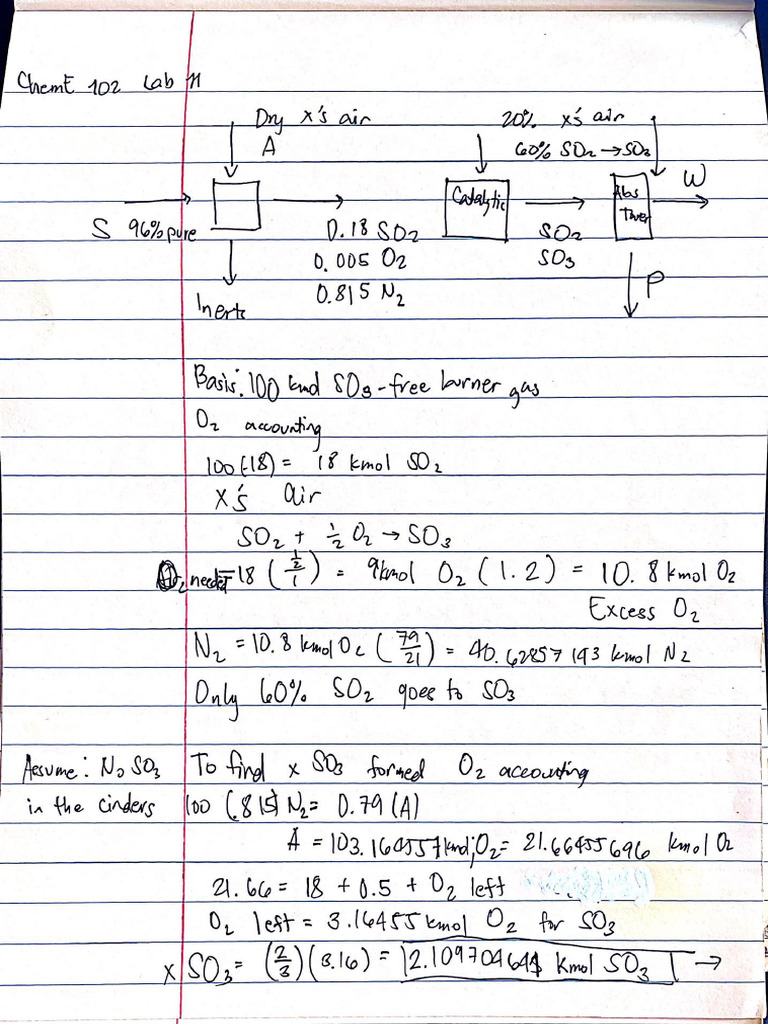 ChemE 102 Lab 11
Dry x's air
A
20% x's air
60% SO₂ → SO₃
S 96% pure
0.18 SO₂
0.005 O₂
0.815 N₂
Inerts
Catalytic
SO₂
SO₃
Abs Tower
W
P
Basis: 100 kmol SO₃-free burner gas
O₂ accounting
100(.18) = 18 kmol SO₂
x's air
SO₂ + ½ O₂ → SO₃
O₂ needed = 18 (½/1) = 9 kmol O₂ (1.2) = 10.8 kmol O₂
Excess O₂
N₂ = 10.8 kmol O₂ (79/21) = 40.62857143 kmol N₂
Only 60% SO₂ goes to SO₃
Assume: No SO₃
in the cinders
To find x SO₃ formed O₂ accounting
100 (.815) N₂ = 0.79 (A)
A = 103.164557 kmol; O₂ = 21.66455696 kmol O₂
21.66 = 18 + 0.5 + O₂ left
O₂ left = 3.16455 kmol O₂ for SO₃
x SO₃ = (2/3)(3.16) = 2.109704641 kmol SO₃ →